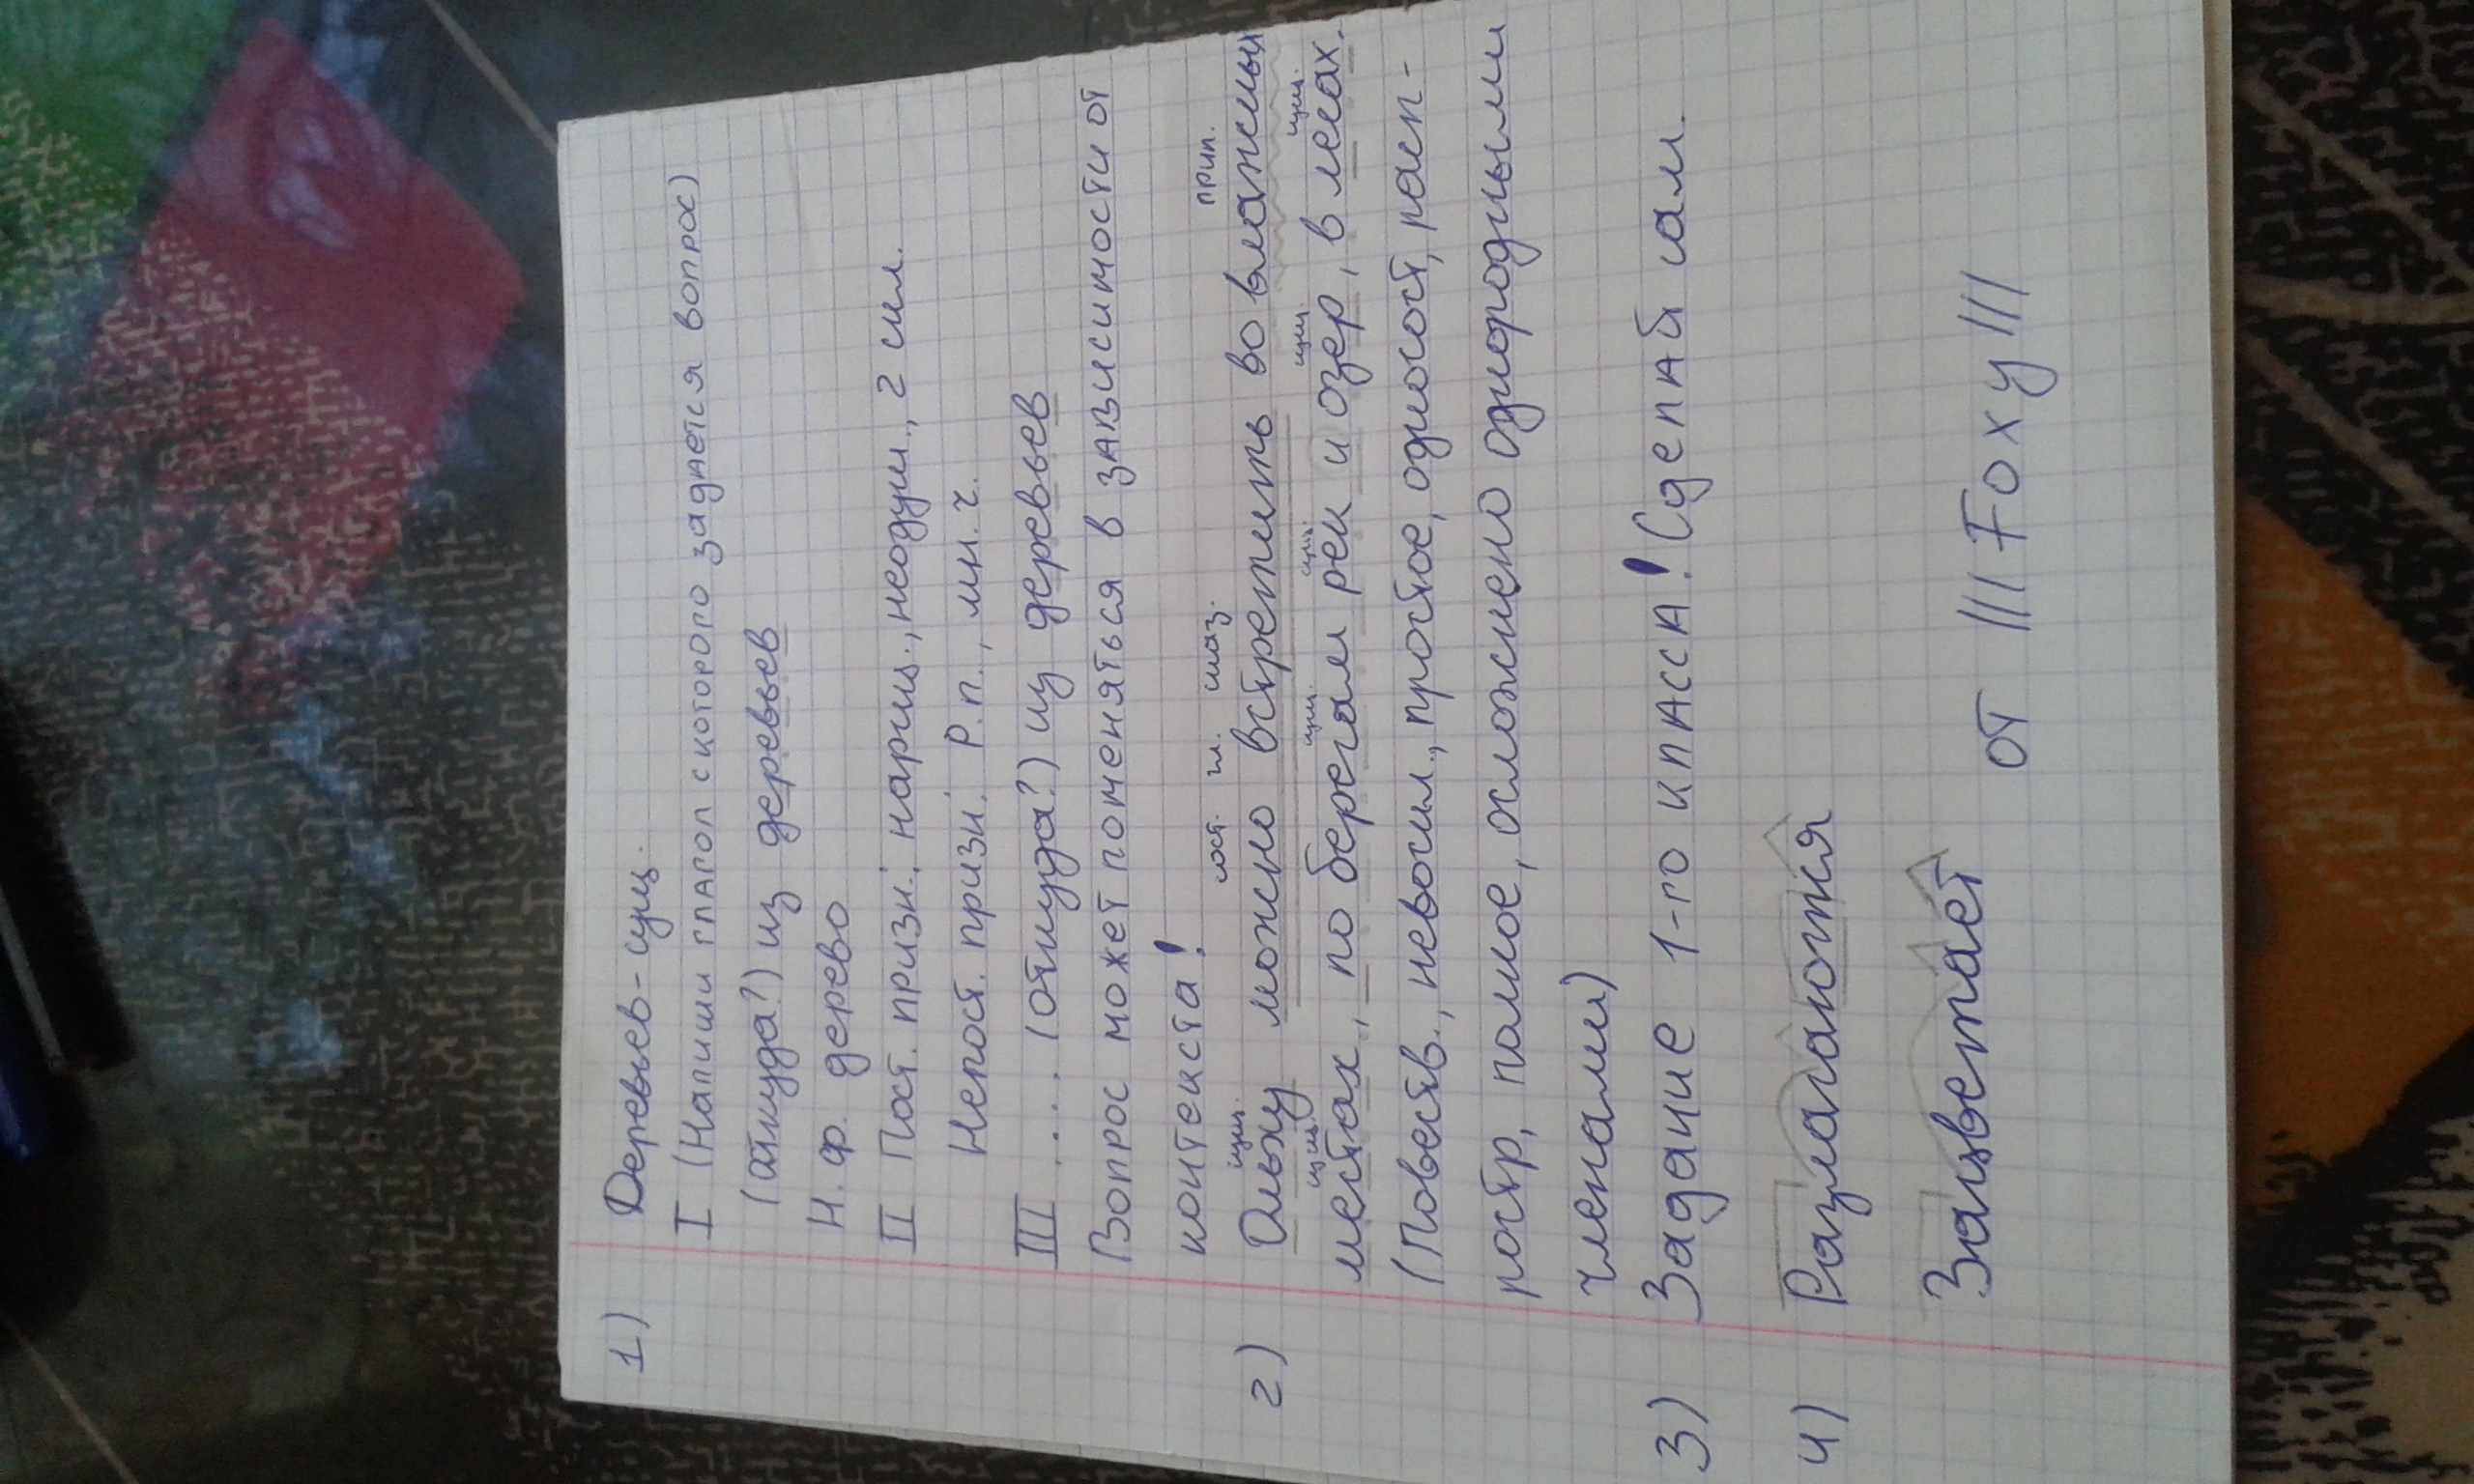 1) Деревьев - сущ.
I (Напиши глагол с которого задаётся вопрос)
(откуда?) из деревьев
Н. ф. дерево
II Пост. призн.: нариц., неодуш., 2 скл.
Непост. призн.: Р.п., мн.ч.
III . . . . (откуда?) из деревьев
Вопрос может поменяться в зависимости от
контекста!
сущ. сост. гл. сказ. прил.
2) Ольху можно встретить во влажных
сущ. сущ. сущ. сущ. сущ.
местах, по берегам рек и озер, в лесах.
(Повеств., невоскл., простое, односост, расп-
ростр, полное, осложнено однородными
членами)
3) Задание 1-го класса! Сделай сам.
4) Разлагаются
Зацветает
от ///Foxy///